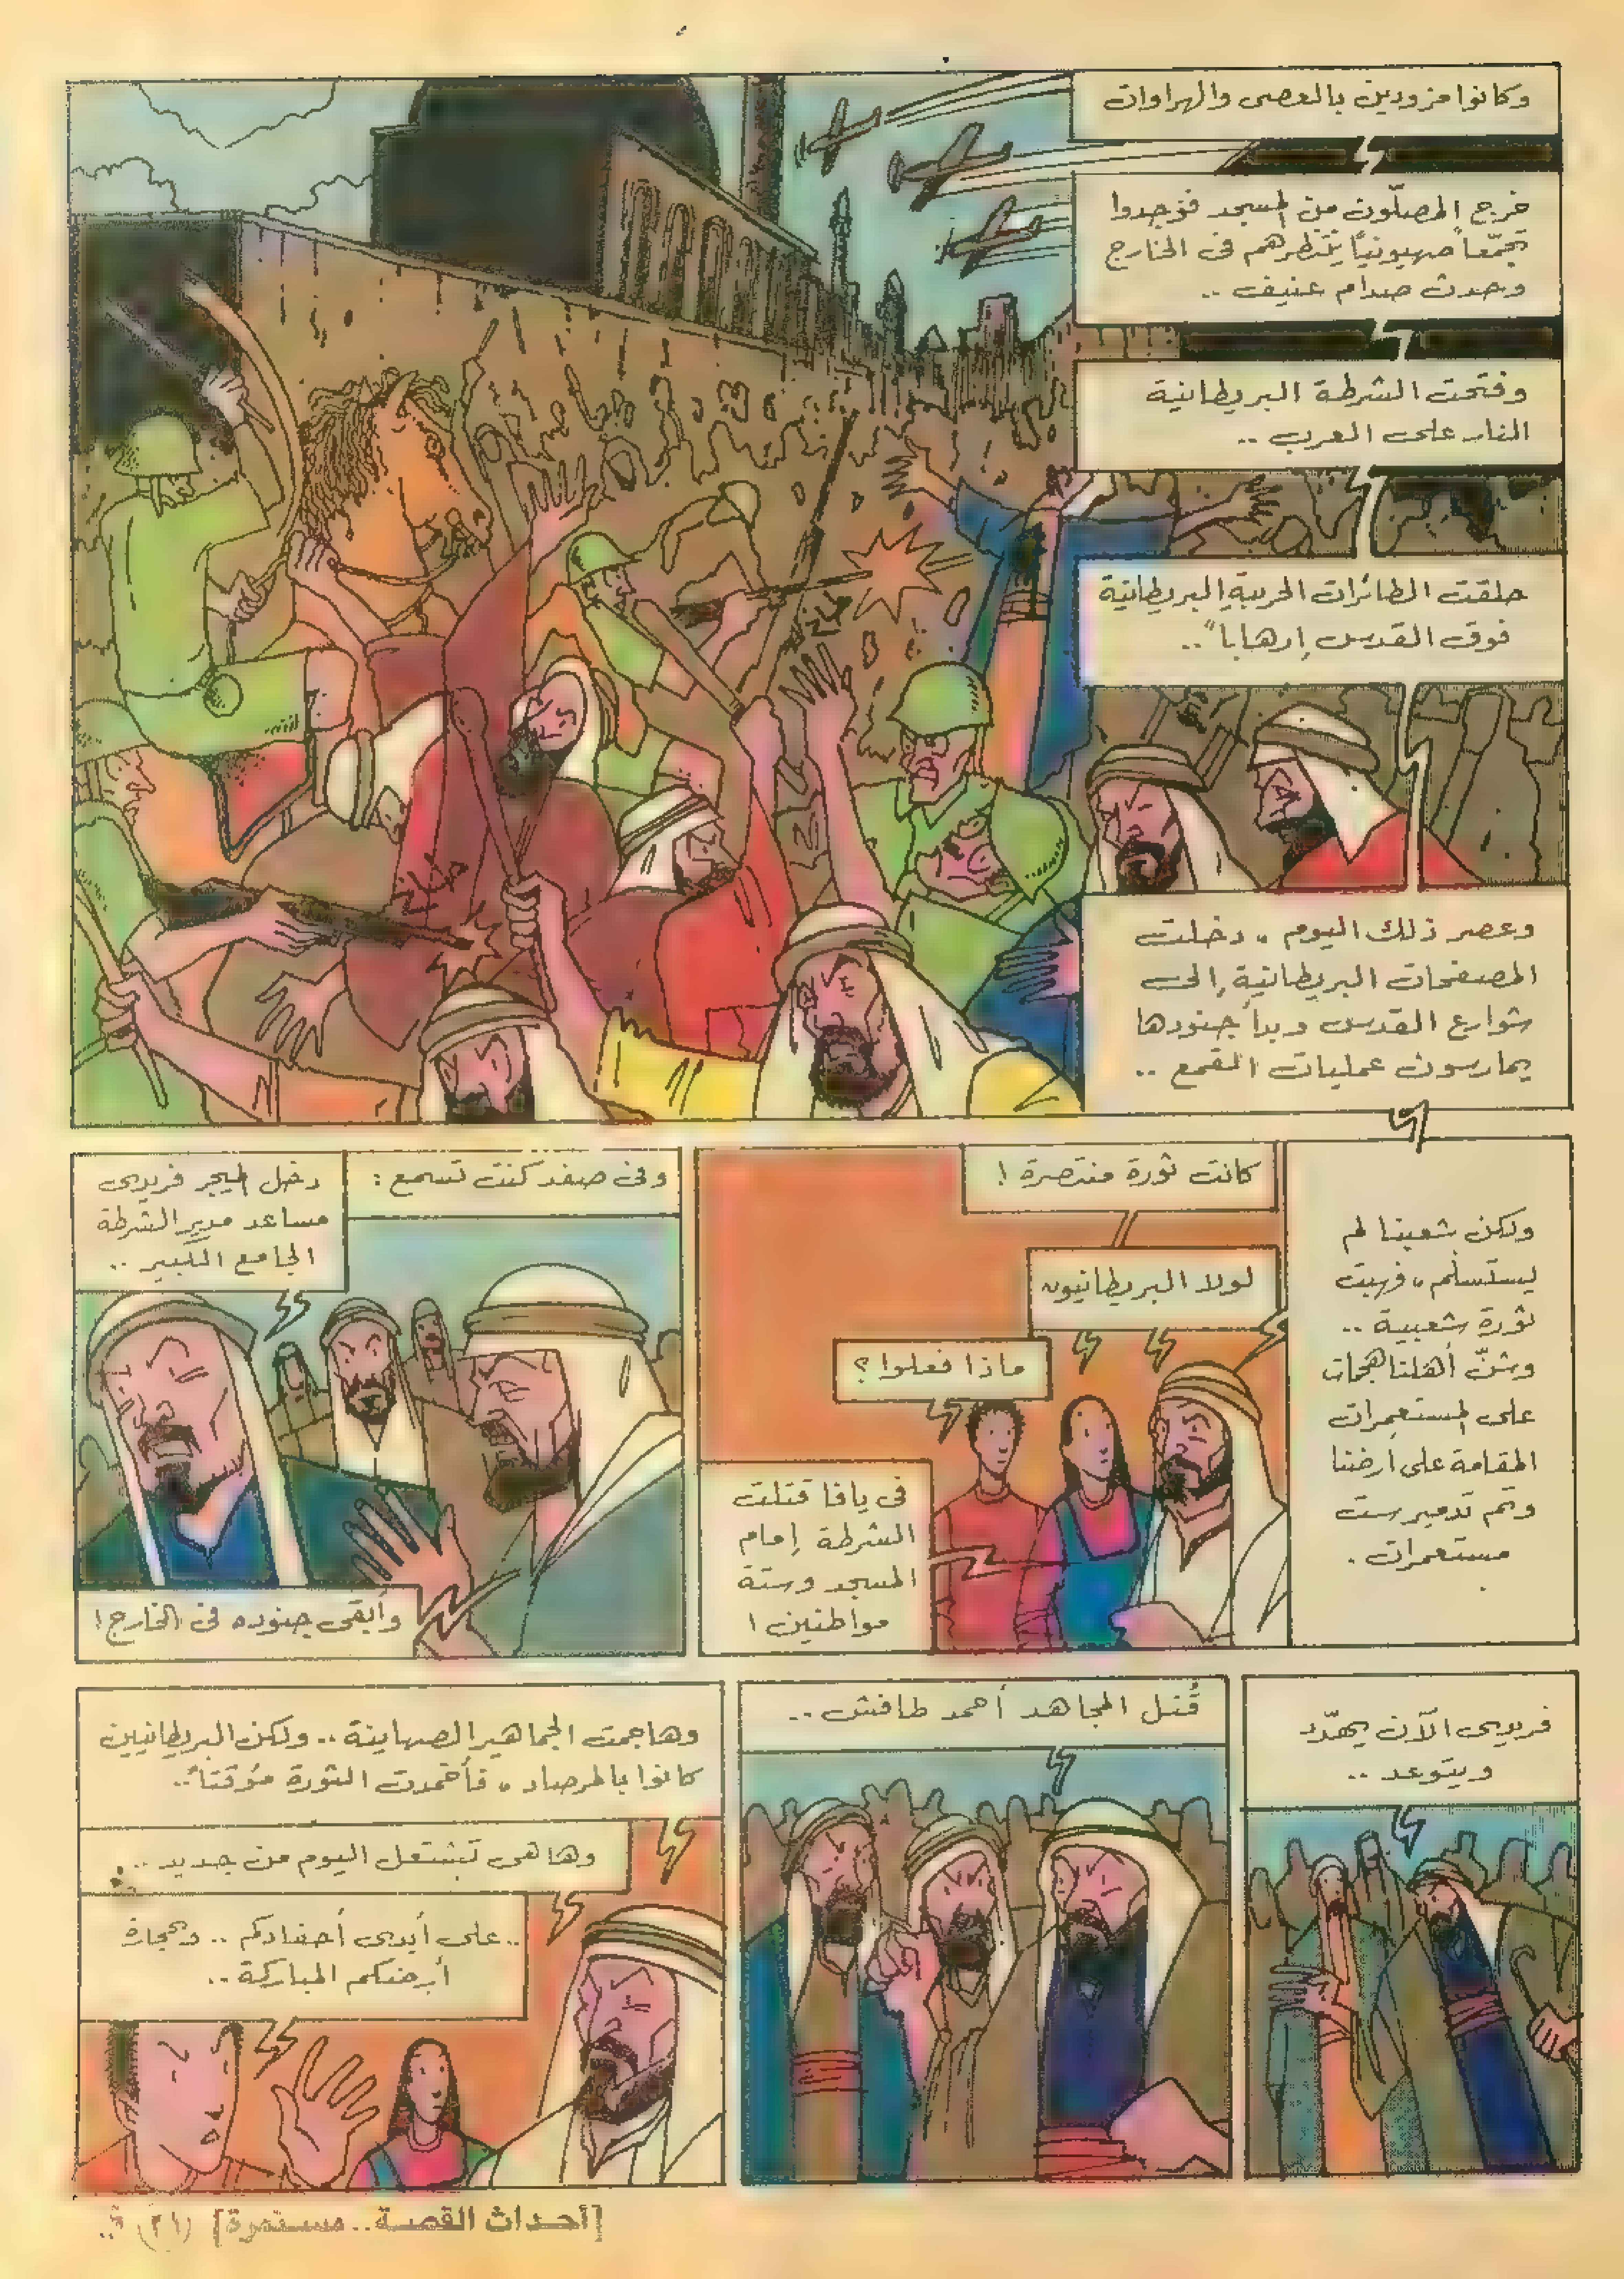 وكانوا مزودين بالعصي والهراوات
خرج المصلّون من المسجد فوجدوا
تجمّعاً صهيونياً ينتظرهم فى الخارج
وحدث صدام عنيف ..
وفتحت الشرطة البريطانية
النار على العرب ..
حلقت الطائرات الحربية البريطانية
فوق القدس إرهاباً ..
وعصر ذلك اليوم ، دخلت
المصفحات البريطانية إلى
شوارع القدس وبدأ جنودها
يمارسون عمليات القمع ..
ولكن شعبنا لم
يستسلم ، فهبت
ثورة شعبية ..
وشنّ أهلنا هجمات
على المستعمرات
المقامة على أرضنا
وتم تدمير ست
مستعمرات .
كانت ثورة منتصرة !
لولا البريطانيون
ماذا فعلوا ؟
فى يافا قتلت
الشرطة إمام
المسجد وستة
مواطنين !
وفى صفد كنت تسمع :
دخل الميجر فريدى
مساعد مدير الشرطة
الجامع الكبير ..
وأبقى جنوده فى الخارج !
فريدى الآن يهدّد
ويتوعد ..
قُتل المجاهد أحمد طافش ..
وهاجمت الجماهير الصهاينة .. ولكن البريطانيين
كانوا بالمرصاد ، فأخمدت الثورة مؤقتاً ..
وها هى تشتعل اليوم من جديد ..
.. على أيدى أحفادكم .. وحجارة
أرضكم المباركة ..
[أحداث القصة .. مستمرة] (٢١)